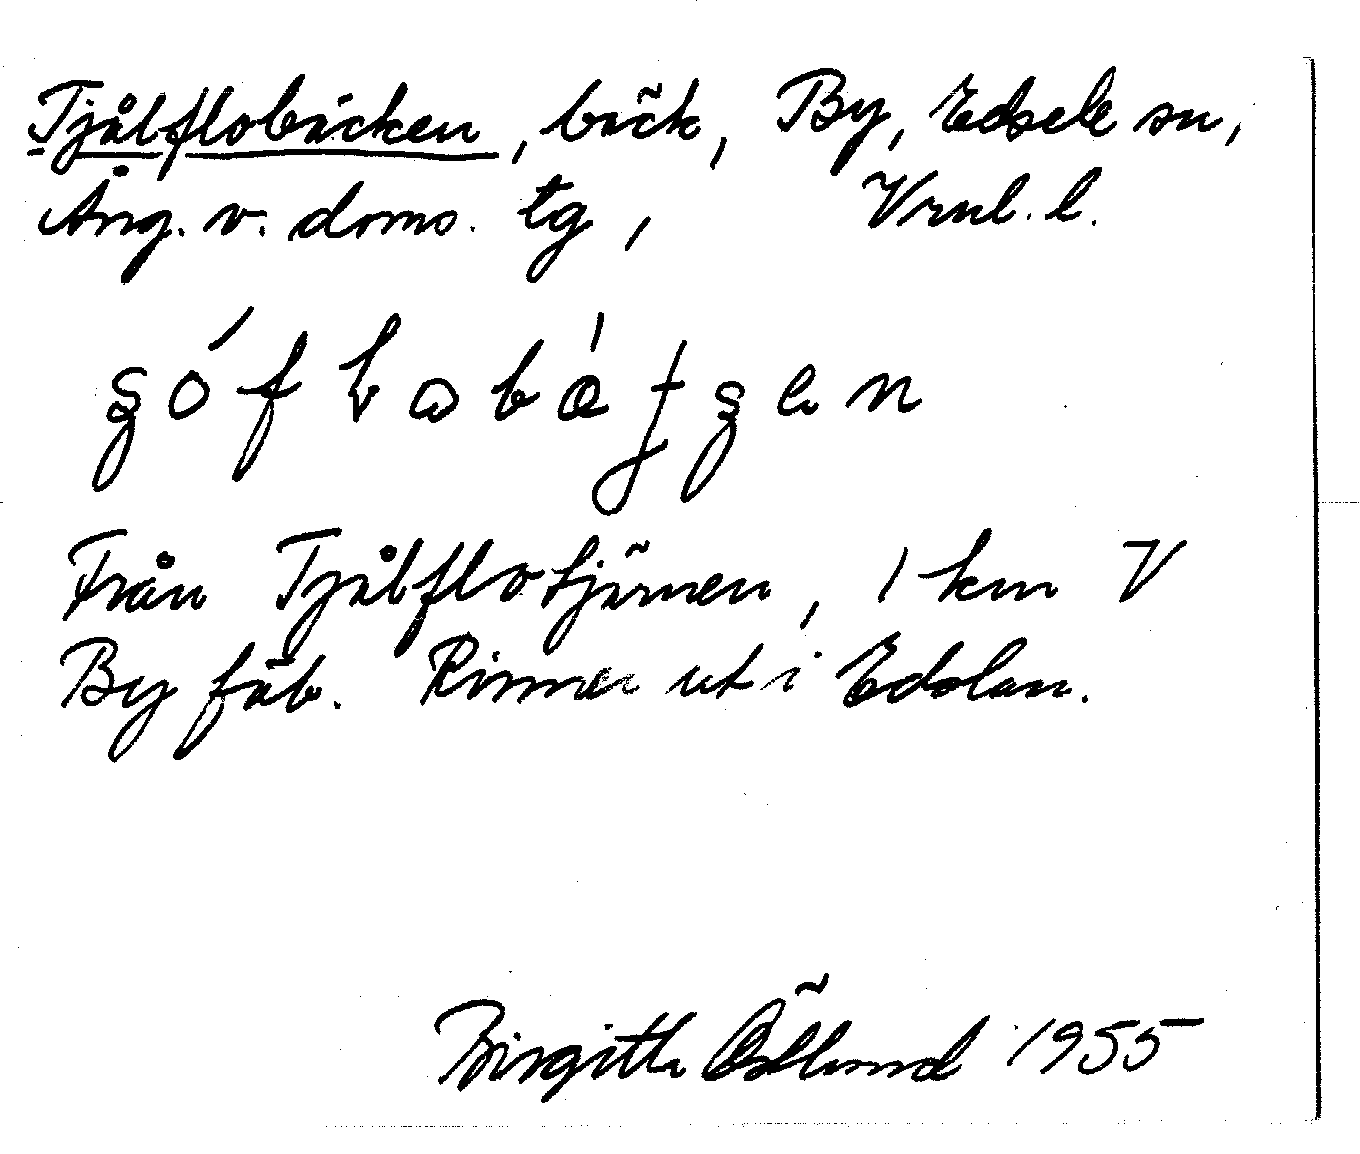 Tjålflobäcken, bäck, By, Edsele sn,
Ång. v. doms. tg, Vrnl. l.
Från Tjålflotjärnen, 1 km V
By fäb. Rinner ut i Edslan.
Birgitta Östlund 1955